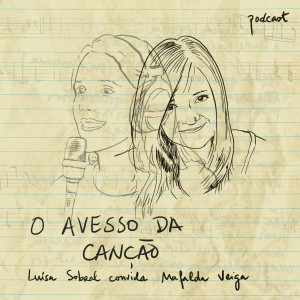 podcast
O AVESSO DA
CANÇÃO
Luísa Sobral convida Mafalda Veiga